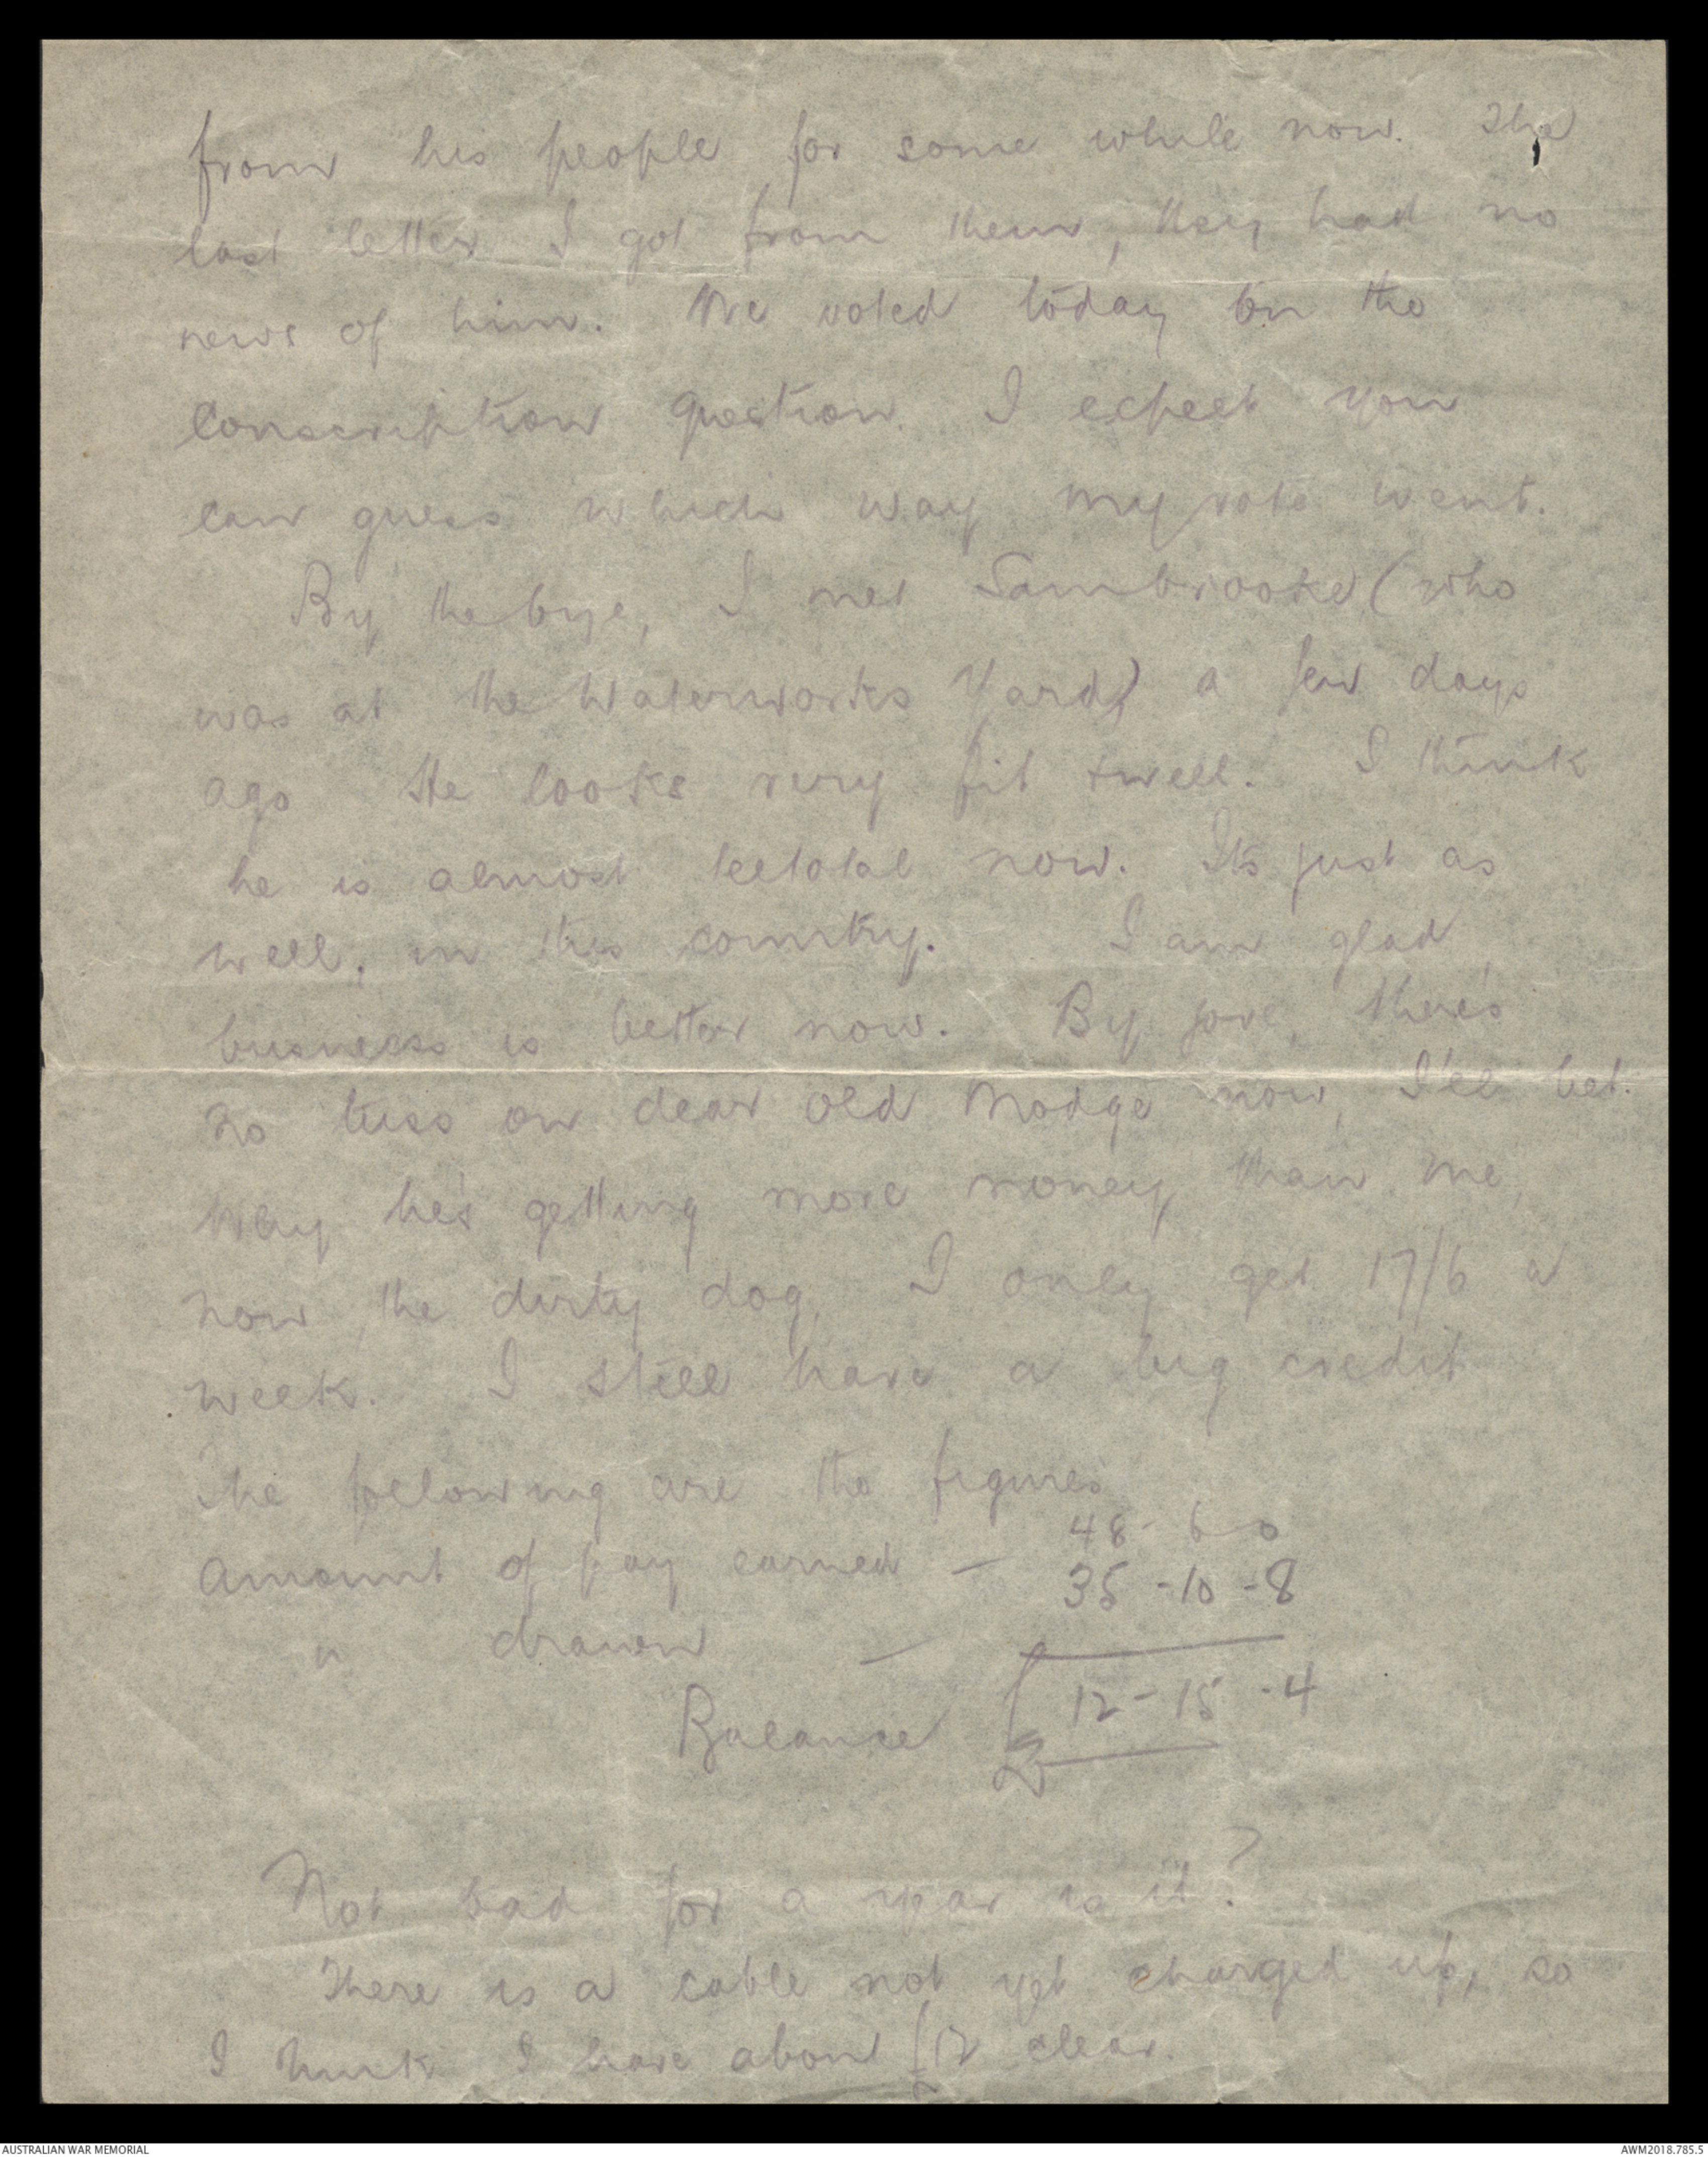 from his people for some while now. The
last letter I got from them, they had no
news of him. We voted today on the
Conscription question. I expect you
can guess which way my vote went.
By the bye, I met Sambrooke (who
was at the Waterworks Yard) a few days
ago He looks very fit & well. I think
he is almost teetotal now. Its just as
well, in this country. I am glad
business is better now. By jove, there's
no on dear old Modge now, I'll bet.
Why he's getting more money than me,
now, the dirty dog. I only get 17/6 a
week. I still have a big credit
The following are the figures
Amount of pay earned — 48 - 6 - 0
" drawn — 35 - 10 - 8
Balance £ 12 - 15 - 4
Not bad for a year is it?
There is a cable not yet charged up, so
I think I have about £12 clear.
AUSTRALIAN WAR MEMORIAL
AWM2018.785.5